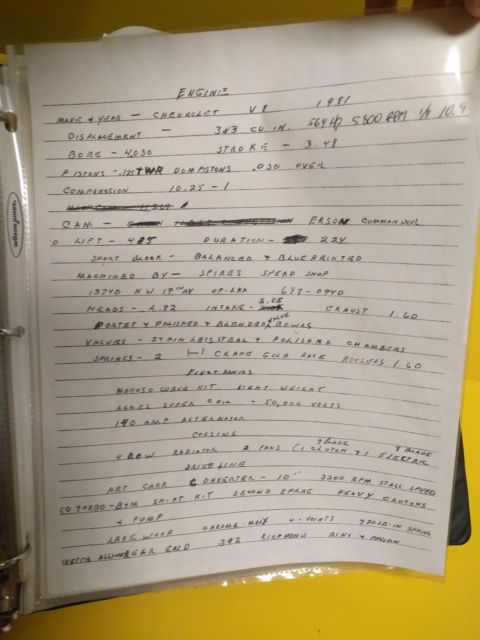 ENGINE
MAKE & YEAR - CHEVROLET V8 1981
DISPLACEMENT - 383 CU. IN. 564 Hp 5800 RPM 1/4 10.9
BORE - 4.030 STROKE - 3.48
PISTONS - .125 TWR DOM PISTONS .030 OVER
COMPRESSION 10.25 - 1
CAM - ERSON COMMANDER
LIFT - 485 DURATION - 224
SHORT BLOCK - BALANCED & BLUEPRINTED
MACHINED BY - SPIRES SPEED SHOP
13740 N.W. 19TH AV OP-LKA
HEADS - INTAKE - 2.05 EXAUST 1.60
PORTET & POLISHED & BOWLS
VALVES - & POLISHED CHAMBERS
SPRINGS - 2 CRANE GOLD RACE ROCKERS 1.60
ELECTRONICS
CURVE KIT RIGHT WEIGHT
SUPER COIL - 50,000 VOLTS
AMP ALTERNATOR
COOLING
4 ROW RADIATOR 2 FANS (1 CLUTCH & 1 ELECTRIC
DRIVE LINE
ART CARR CONVERTER - 10" 3200 RPM STALL SPEED
TURBO - B&M SHIFT KIT SECOND SPRAG HEAVY CLUTCHS
& PUMP
LAKEWOOD CHROME-MOLY U-JOINTS
REAR END 392 RICHMOND RING & PINION